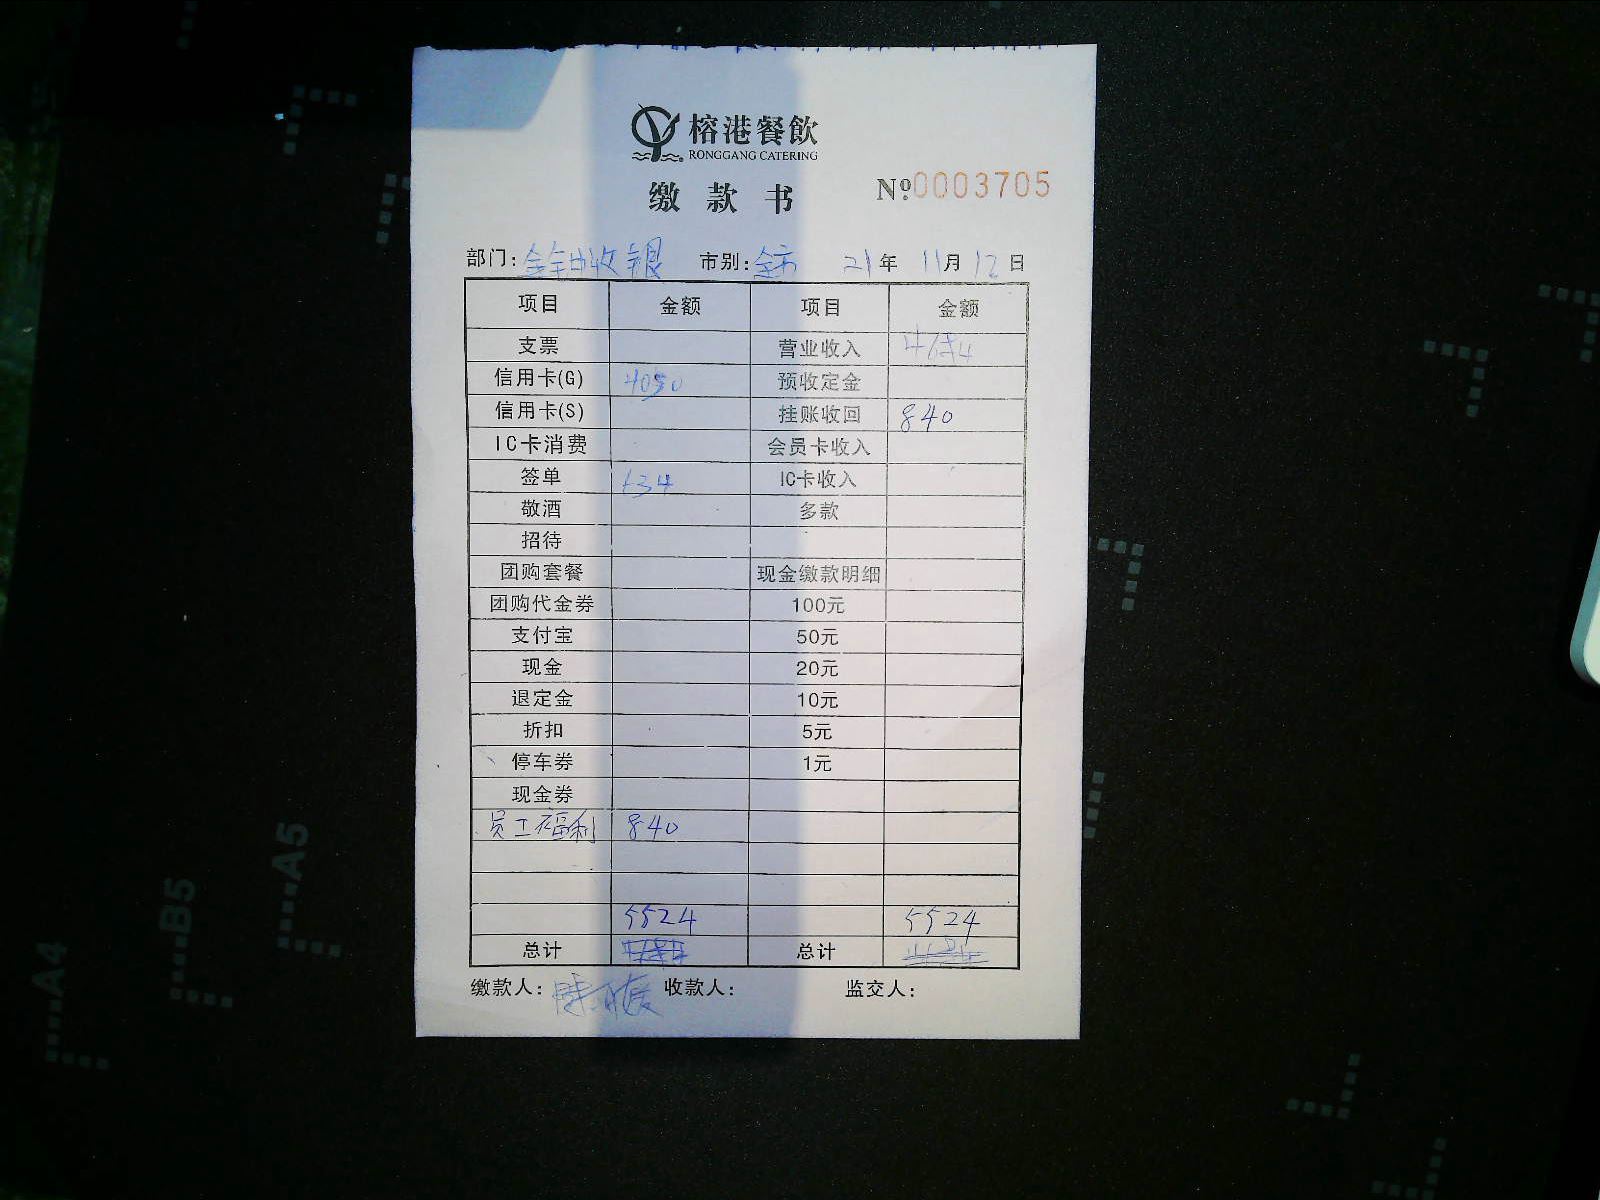 榕港餐飲
RONGGANG CATERING
缴款书
Nº.0003705
部门: 金钟收银 市别: 全市 21年 11月 12日
项目 金额 项目 金额
支票 营业收入
信用卡(G) 4050 预收定金
信用卡(S) 挂账收回 840
IC卡消费 会员卡收入
签单 634 IC卡收入
敬酒 多款
招待
团购套餐 现金缴款明细
团购代金券 100元
支付宝 50元
现金 20元
退定金 10元
折扣 5元
停车券 1元
现金券
员工福利 840
5524 5524
总计 总计
缴款人: 收款人: 监交人:
A4
B5
A5